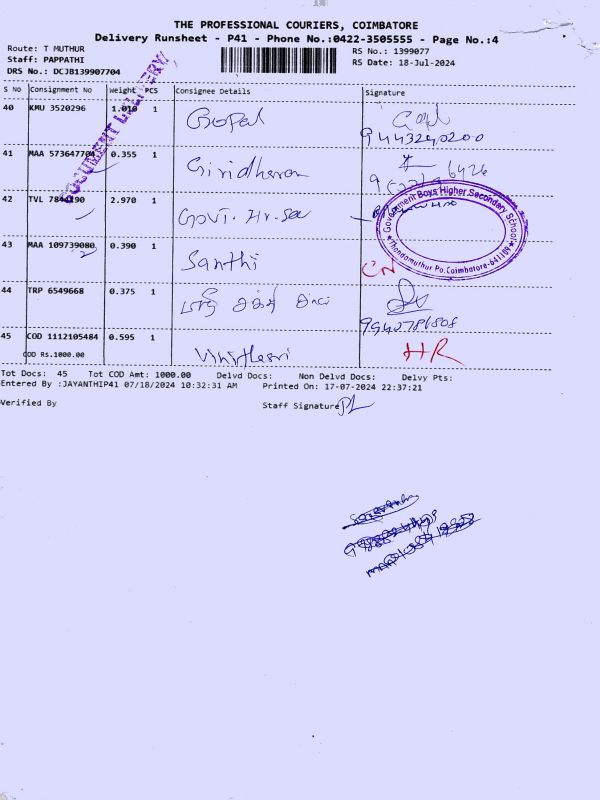 THE PROFESSIONAL COURIERS, COIMBATORE
Delivery Runsheet - P41 - Phone No.:0422-3505555 - Page No.:4
Route: T MUTHUR
Staff: PAPPATHI
DRS No.: DCJB139907704
RS No.: 1399077
RS Date: 18-Jul-2024
DOCUMENT DELIVERY
S No Consignment No Weight PCS Consignee Details Signature
40 KMU 3520296 1.010 1 Gopal
9443240200
41 MAA 573647704 0.355 1 Giridharan
42 TVL 7844190 2.970 1 Govt. Hr. Sec
Government Boys Higher Secondary School
Thondamuthur Po, Coimbatore-641109
43 MAA 109739080 0.390 1 Santhi CN
44 TRP 6549668 0.375 1
45 COD 1112105484 0.595 1 HR
COD Rs.1000.00
Tot Docs: 45 Tot COD Amt: 1000.00 Delvd Docs: Non Delvd Docs: Delvy Pts:
Entered By :JAYANTHIP41 07/18/2024 10:32:31 AM Printed On: 17-07-2024 22:37:21
Verified By Staff Signature